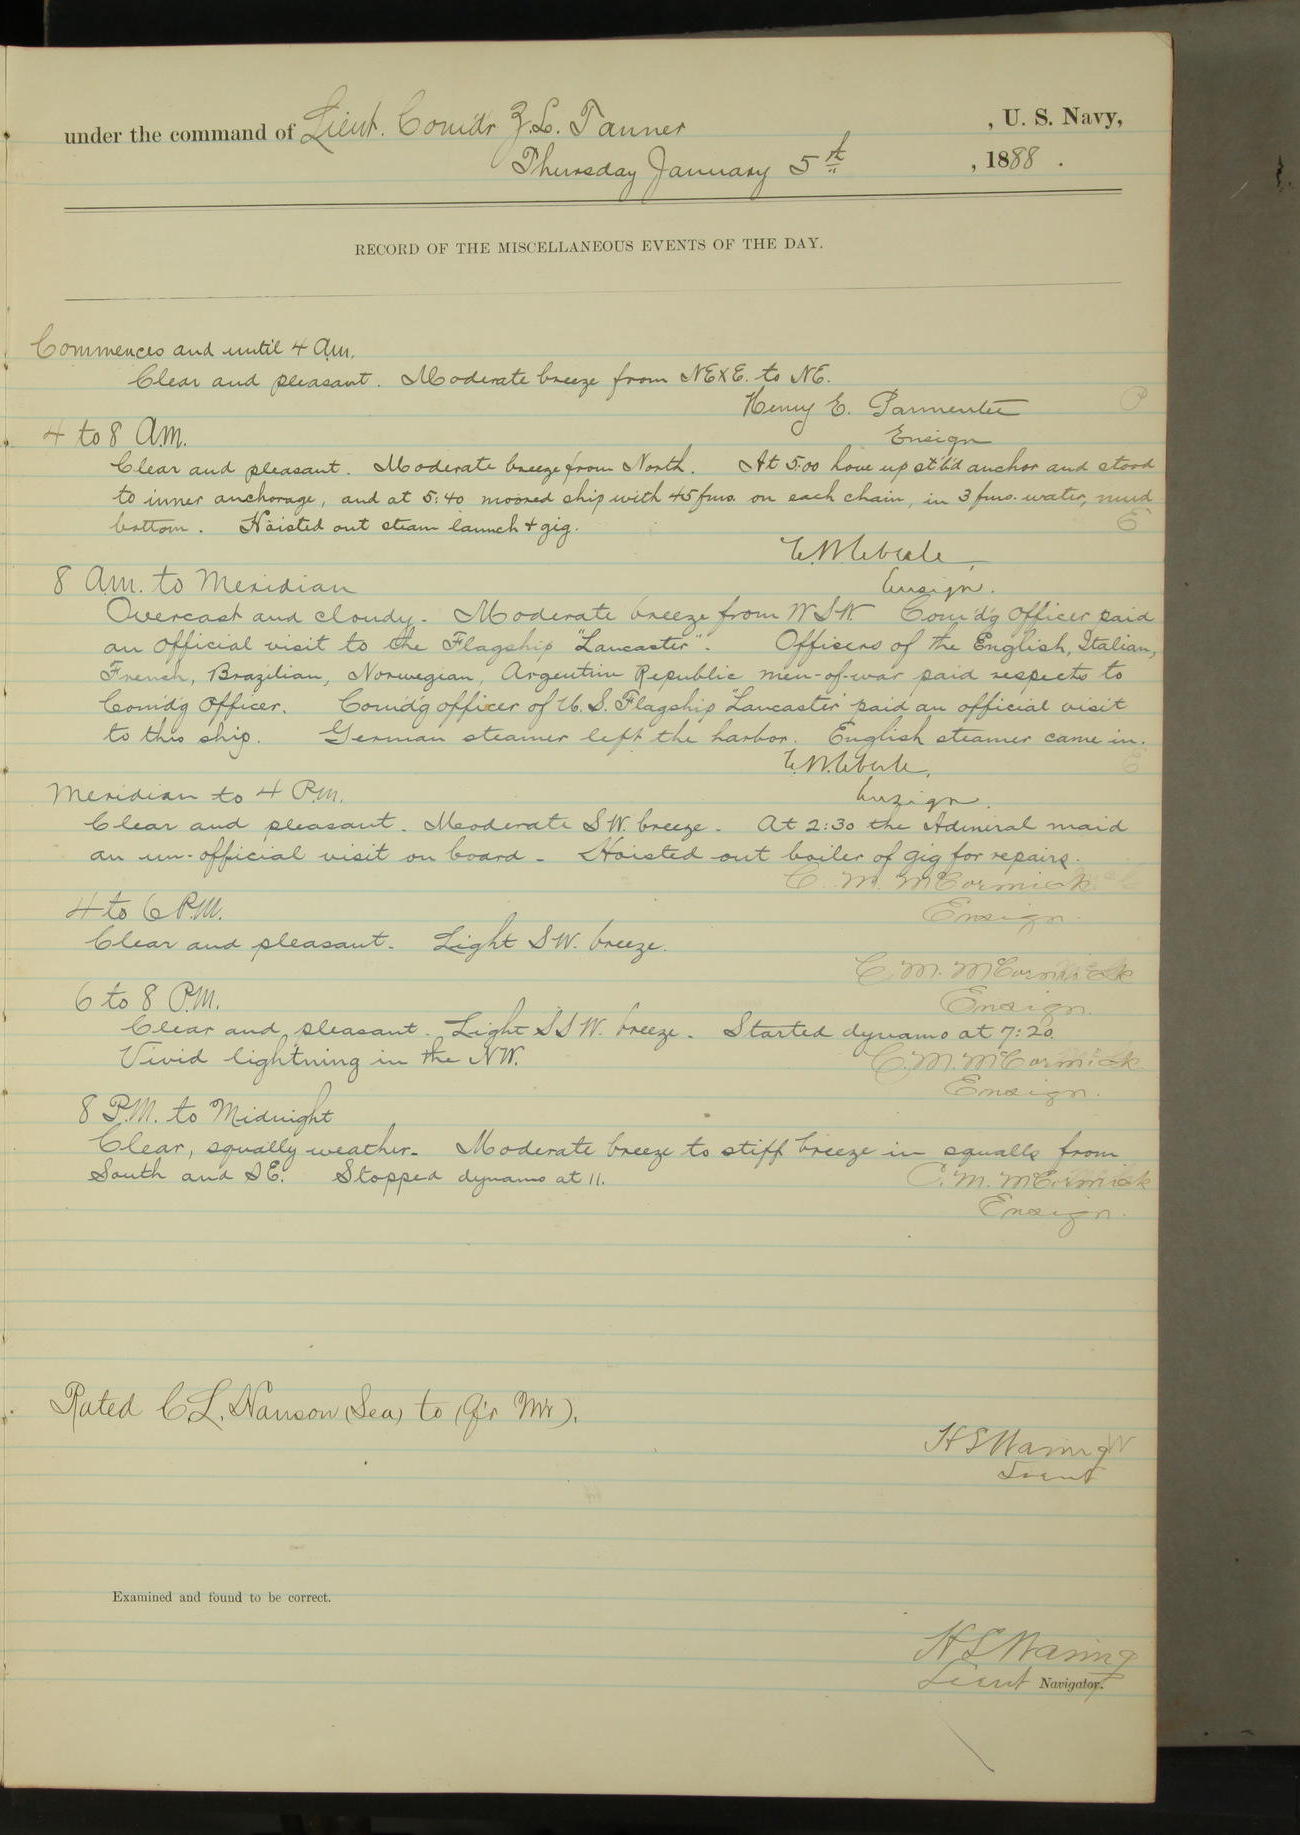 under the command of Lieut. Comdr Z. L. Tanner , U. S. Navy,
Thursday January 5th , 1888 .
RECORD OF THE MISCELLANEOUS EVENTS OF THE DAY.
Commences and until 4 A.M.
Clear and pleasant. Moderate breeze from NExE. to NE.
Henry E. Parmenter P
Ensign
4 to 8 A.M.
Clear and pleasant. Moderate breeze from North. At 5:00 hove up st'b'd anchor and stood
to inner anchorage, and at 5:40 moored ship with 45 fms. on each chain, in 3 fms. water, mud
bottom. Hoisted out steam launch & gig. E
E. W. Eberle,
Ensign.
8 A.M. to Meridian
Overcast and cloudy. Moderate breeze from WSW Com'd'g Officer paid
an official visit to the Flagship "Lancaster". Officers of the English, Italian,
French, Brazilian, Norwegian, Argentine Republic men-of-war paid respects to
Com'd'g Officer. Com'd'g officer of U. S. Flagship "Lancaster" paid an official visit
to this ship. German steamer left the harbor. English steamer came in.
E. W. Eberle, E
Ensign.
Meridian to 4 P.M.
Clear and pleasant. Moderate S.W. breeze. At 2:30 the Admiral maid
an un-official visit on board. Hoisted out boiler of gig for repairs.
C. M. McCormick
Ensign.
4 to 6 P.M.
Clear and pleasant. Light S.W. breeze.
C. M. McCormick
Ensign.
6 to 8 P.M.
Clear and pleasant. Light S.S.W. breeze. Started dynamo at 7:20.
Vivid lightning in the NW.
C. M. McCormick
Ensign.
8 P.M. to Midnight
Clear, squally weather. Moderate breeze to stiff breeze in squalls from
South and S.E. Stopped dynamo at 11.
C. M. McCormick
Ensign.
Rated C. L. Hanson (Sea) to (Qr Mr).
H S Waring W
Lieut
Examined and found to be correct.
H S Waring
Lieut Navigator.